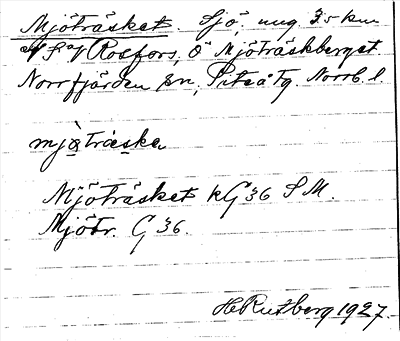 Mjöträsket. Sjö, ung. 3,5 km
N f a/ Rosfors, Ö Mjöträskberget.
Norrfjärden sn, Piteå tg. Norrb. l.
mjòträskə
Mjöträsket kG 36 S M.
Mjötr. G 36.
H Rutberg 1927.